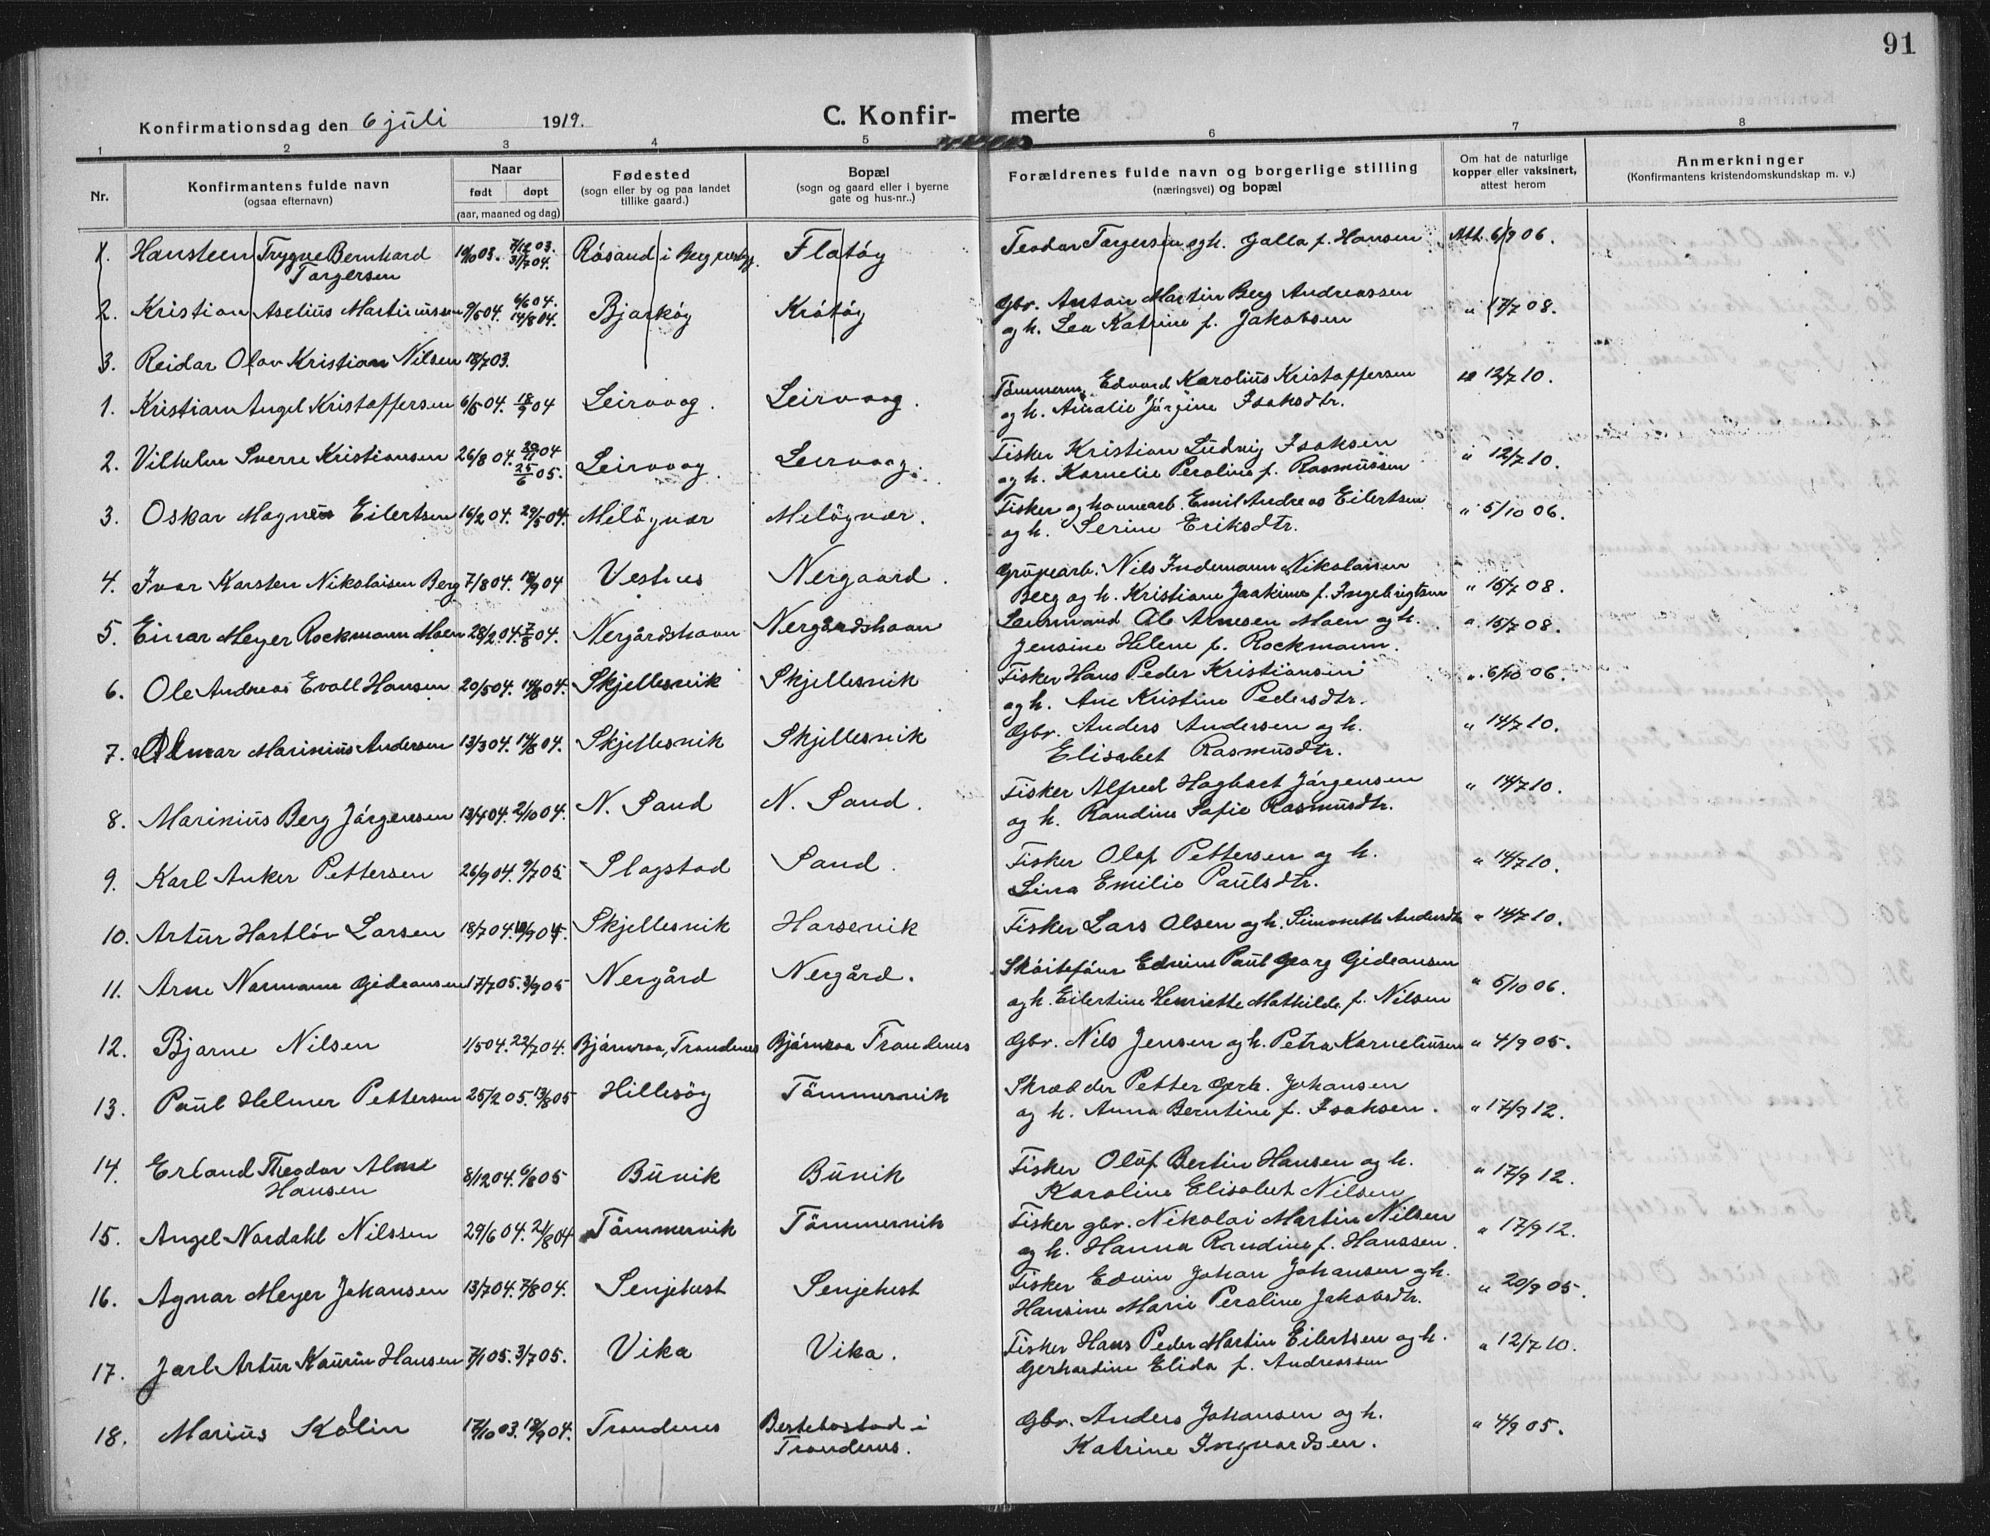 91
Konfirmationsdag den 6 juli 1919.
C. Konfir- merte
1 2 3 4 5 6 7 8
Nr.
Konfirmantens fulde navn
(ogsaa efternavn)
Naar
født døpt
(aar, maaned og dag)
Fødested
(sogn eller by og paa landet
tillike gaard.)
Bopæl
(sogn og gaard eller i byerne
gate og hus-nr..)
Forældrenes fulde navn og borgerlige stilling
(næringsvei) og bopæl
Om hat de naturlige
kopper eller vaksinert,
attest herom
Anmerkninger
(Konfirmantens kristendomskundskap m. v.)
1. Hansteen Trygve Bernhard 19/10 03. 7/12 03. Rösand i Berg Flatöy Teodor Torgersen og h. Jalla f. Hansen Att. 6/9 06.
Torgersen 31/7 04.
2. Kristian Aselius Martinussen 9/5 04. 6/6 04. Bjarköy Krötöy Gbr. Anton Martin Berg Andreassen " 17/7 08.
14/8 04. og h. Lea Katrine f. Jakobsen
3. Reidar Olav Kristian Nilsen 18/7 03.
1. Kristian Angel Kristoffersen 6/5 04. 18/9 04 Leirvaag. Leirvaag. Tömmerm. Edvard Karolius Kristoffersen " 12/7 10.
og h. Amalie Jörgine Isaksdtr.
2. Vilhelm Sverre Kristiansen 26/8 04. 29/11 04 Leirvaag. Leirvaag. Fisker Kristian Ludvig Isaksen " 12/7 10.
25/6 05. og h. Kornelie Peroline f. Rasmussen
3. Oskar Magnus Eilertsen 16/2 04. 29/5 04. Melöyvær Melöyvær. Fisker og havnearb. Emil Andreas Eilertsen " 5/10 06.
og h. Serine Eriksdtr.
4. Ivar Karsten Nikolaisen Berg 7/8 04. 18/9 04 Vesthus Nergaard. Grubearb. Nils Indemann Nikolaisen " 15/7 08.
Berg og h. Kristiane Joakime f. Ingebrigtsen
5. Einar Meyer Rockmann Moen 28/2 04. 7/8 04. Nergårdshavn Nergårdshavn Lensmand Ole Arnesen Moen og h. " 15/7 08.
Jensine Helene f. Rockmann.
6. Ole Andreas Evall Hansen 20/5 04. 14/8 04. Skjellesvik Skjellesvik Fisker Hans Peder Kristiansen " 6/10 06.
og h. Ane Kristine Pedersdtr.
7. Almar Marinius Andersen 13/3 04. 14/8 04. Skjellesvik Skjellesvik Gbr. Anders Andersen og h. " 14/7 10.
Elisabet Rasmusdtr.
8. Marinius Berg Jörgensen 13/4 04. 2/10 04. N. Sand N. Sand. Fisker Alfred Hagbart Jörgensen " 14/7 10.
og h. Randine Sofie Rasmusdtr.
9. Karl Anker Pettersen 26/9 04. 9/7 05. Slagstad Sand. Fisker Olaf Pettersen og h. " 14/7 10.
Lina Emilie Paulsdtr.
10. Artur Hartlöv Larsen 18/7 04. Skjellesvik Harsevik Fisker Lars Olsen og h. Simonette Andersdtr " 14/7 10.
11. Arne Normann Gideonsen 17/7 05. 3/9 05 Nergård Nergård. Sköiteförer Edvin Paul Georg Gideonsen " 5/10 06.
og h. Eilertine Henriette Mathilde f. Nilsen
12. Bjarne Nilsen 1/5 04. 22/7 04. Bjömraa, Trondenes Bjömraa Trondenes Gbr. Nils Jensen og h. Petra Korneliusen " 4/9 05.
13. Paul Helmer Pettersen 25/2 05. 13/8 05 Hillesöy Tömmervik Skrædder Petter Gerh. Johansen " 17/9 12.
og h. Anna Berntine f. Isaksen.
14. Erland Theodor Alme 8/12 04. 6/8 05 Buvik Buvik Fisker Oluf Bertin Hansen og h. " 17/9 12.
Hansen Karoline Elisabet Nilsen
15. Angel Nordahl Nilssen 29/6 04. 21/8 04 Tömmervik Tömmervik Fisker gbr. Nikolai Martin Nilsen " 17/9 12.
og h. Hanna Randine f. Hanssen.
16. Agnar Meyer Johansen 13/7 04. 7/8 04. Senjehest Senjehest Fisker Edvin Johan Johansen og h. " 20/9 05.
Hansine Marie Peroline Jakobsdtr.
17. Jarl Artur Kaurin Hansen 7/1 05. 3/7 05. Vika Vika. Fisker Hans Peder Martin Eilertsen og h. " 12/7 10.
Gerhardine Elida f. Andreassen
18. Marius Kolin 17/10 03. 18/9 04. Trondenes Bertebostad i Gbr. Anders Johansen og h. " 4/9 05.
Trondenes. Katrine Ingvardsen.